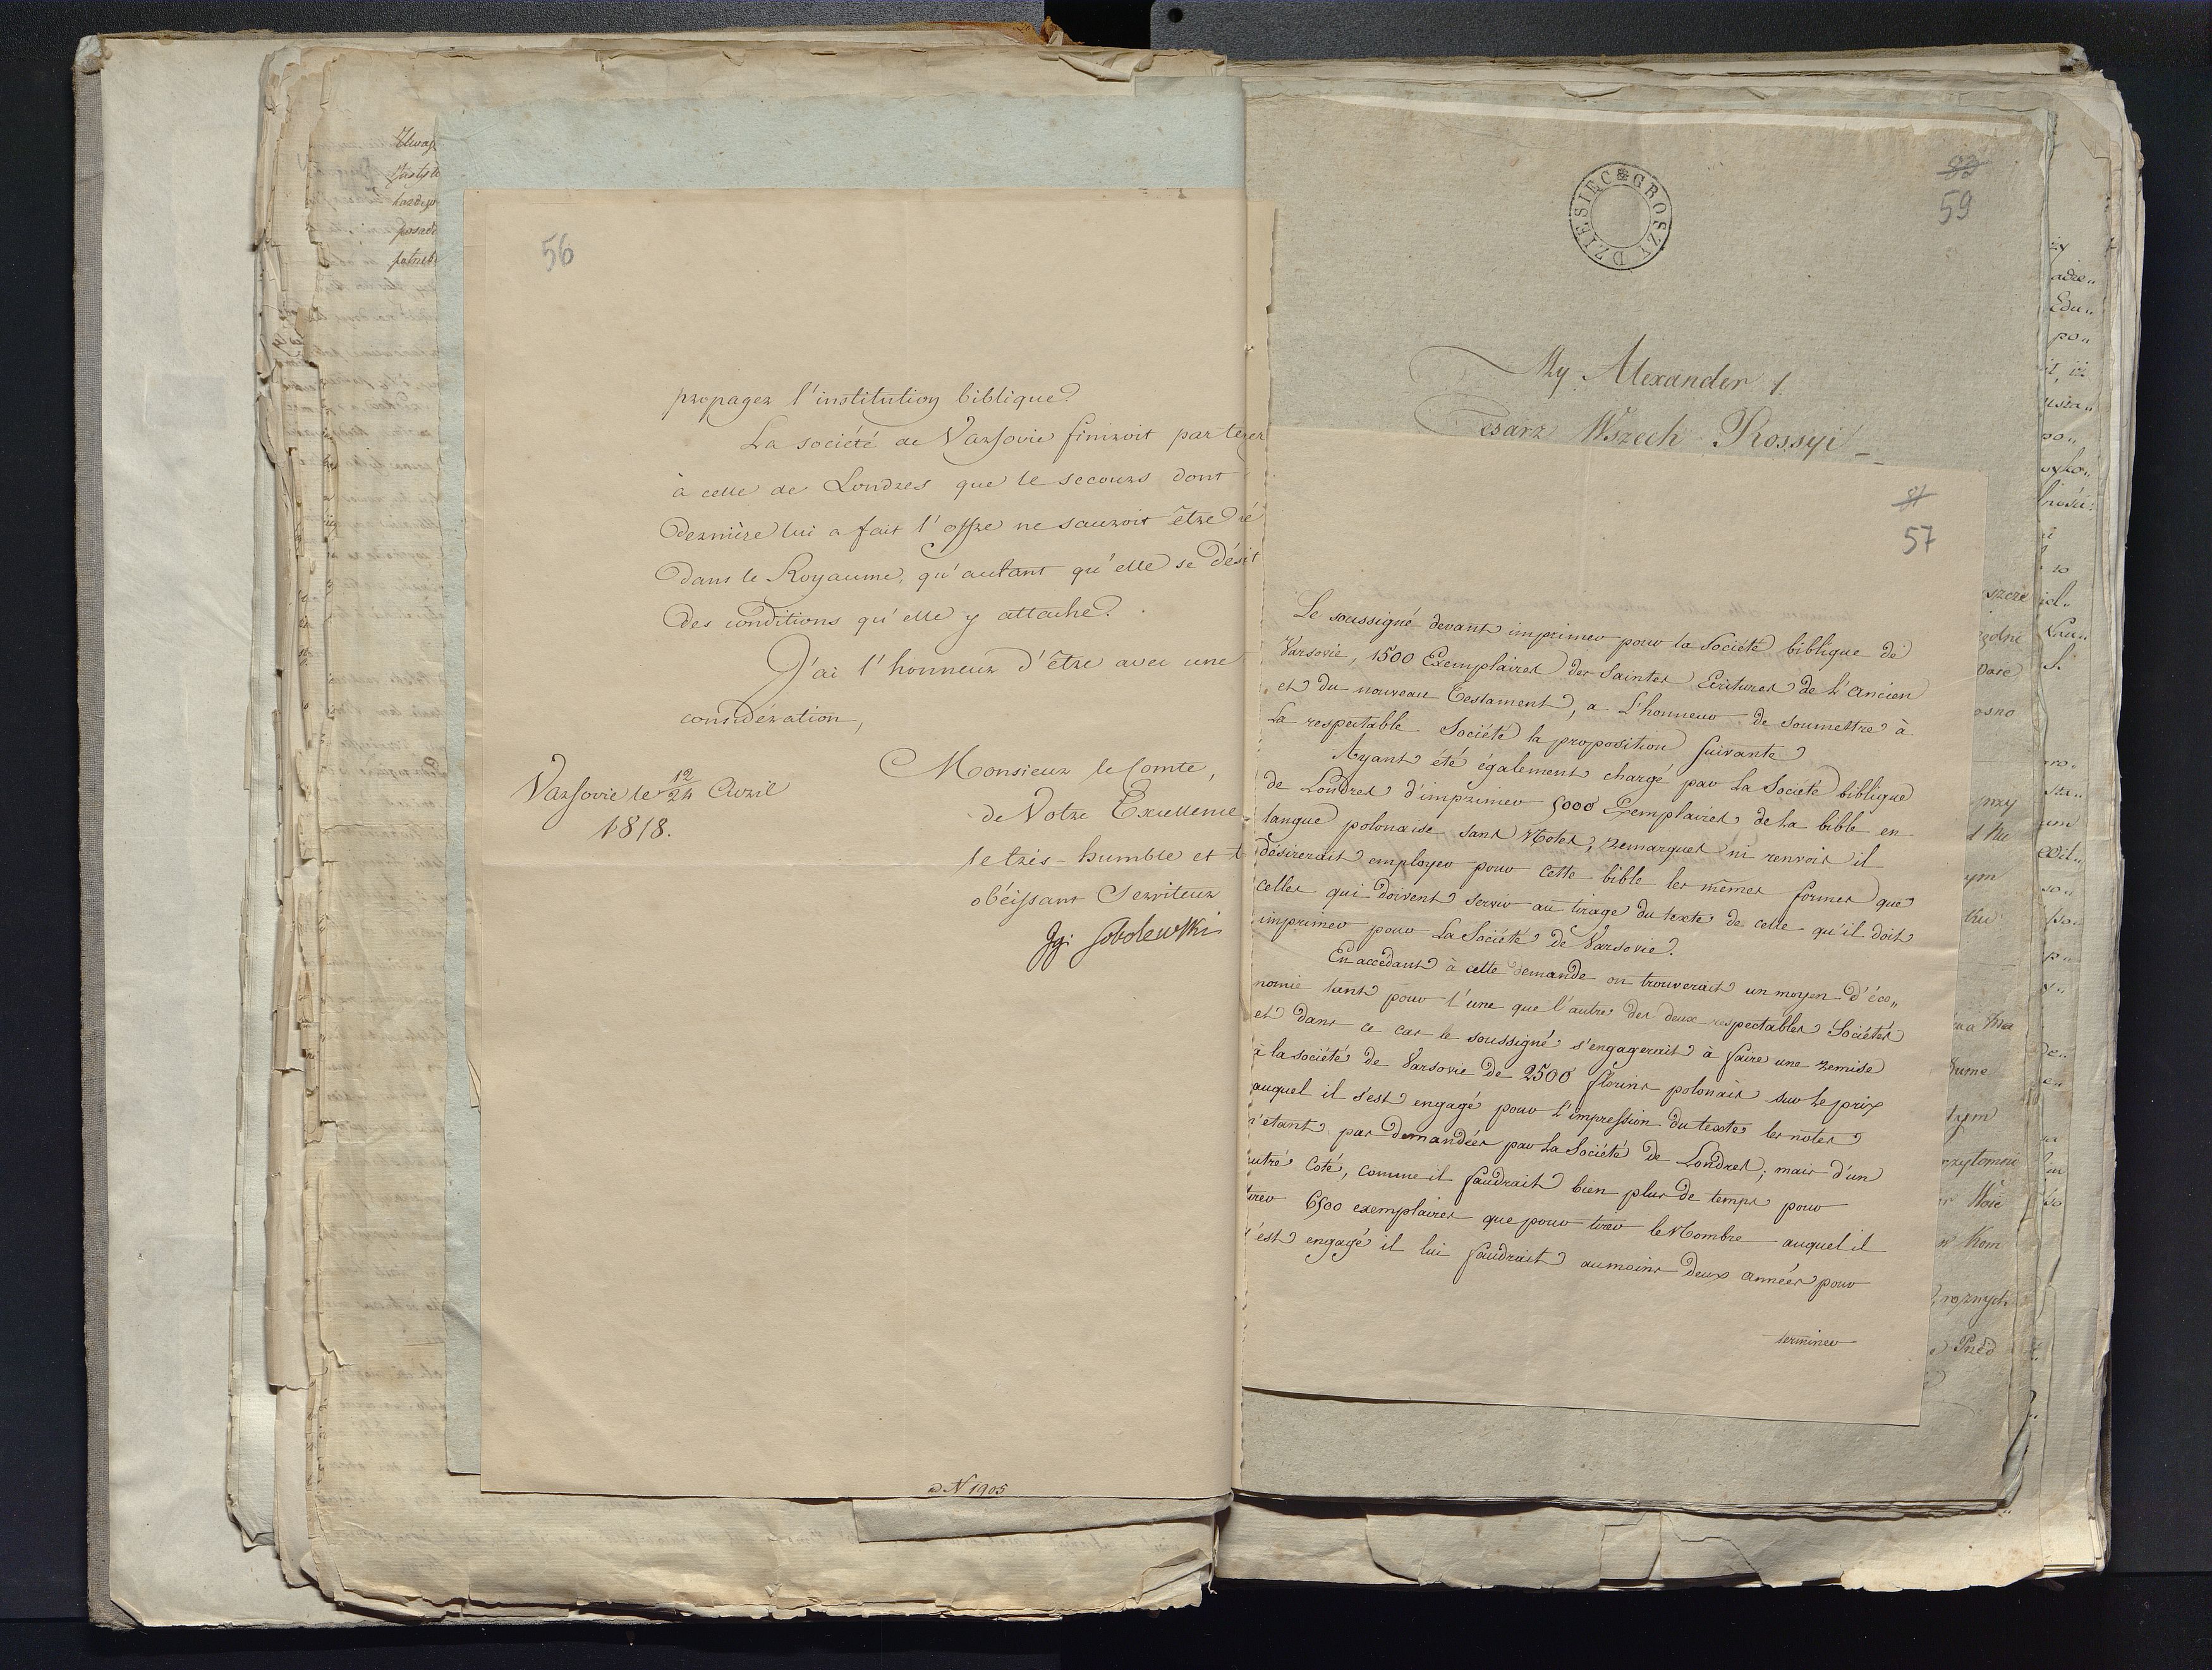 56
propager l'institution biblique.
La société de Varsovie finiroit par
à celle de Londres que le secours dont
dernière lui a fait l'offre ne sauroit être
dans le Royaume, qu'autant qu'elle se
des conditions qu'elle y attache.
J'ai l'honneur d'être avec une
considération,
Monsieur le Comte,
de Votre Excellence
le très-humble et
obéissant Serviteur
Sobolewski
Varsovie le 12/24 Avril
1818.
N 1905
DZIESIEC GROSZY
83
59
My Alexander 1.
Cesarz Wszech Rossyi
81
57
Le soussigné devant imprimer pour la Société biblique de
Varsovie, 1500 Exemplaires des Saintes Ecritures de L'Ancien
et du nouveau Testament, a L'honneur de soumettre à
La respectable Société la proposition suivante
Ayant été également chargé par La Société biblique
de Londres d'imprimer 5000 Exemplaires de La bible en
langue polonaise sans Notes, remarques ni renvois il
désirerait employer pour cette bible les mêmes formes que
celles qui doivent servir au tirage du texte de celle qu'il doit
imprimer pour La Société de Varsovie.
En accédant à cette demande on trouverait un moyen d'éco„
nomie tant pour l'une que l'autre des deux respectables Sociétés
et dans ce cas le soussigné s'engagerait à faire une remise
à la société de Varsovie de 2500 florins polonais sur Le prix
auquel il s'est engagé pour L'impression du texte, les notes
n'étant pas demandées par La Société de Londres; mais d'un
utre coté, comme il faudrait bien plus de temps pour
tirer 6500 exemplaires que pour tirer le Nombre auquel il
s'est engagé il lui faudrait au moins deux années pour
terminer